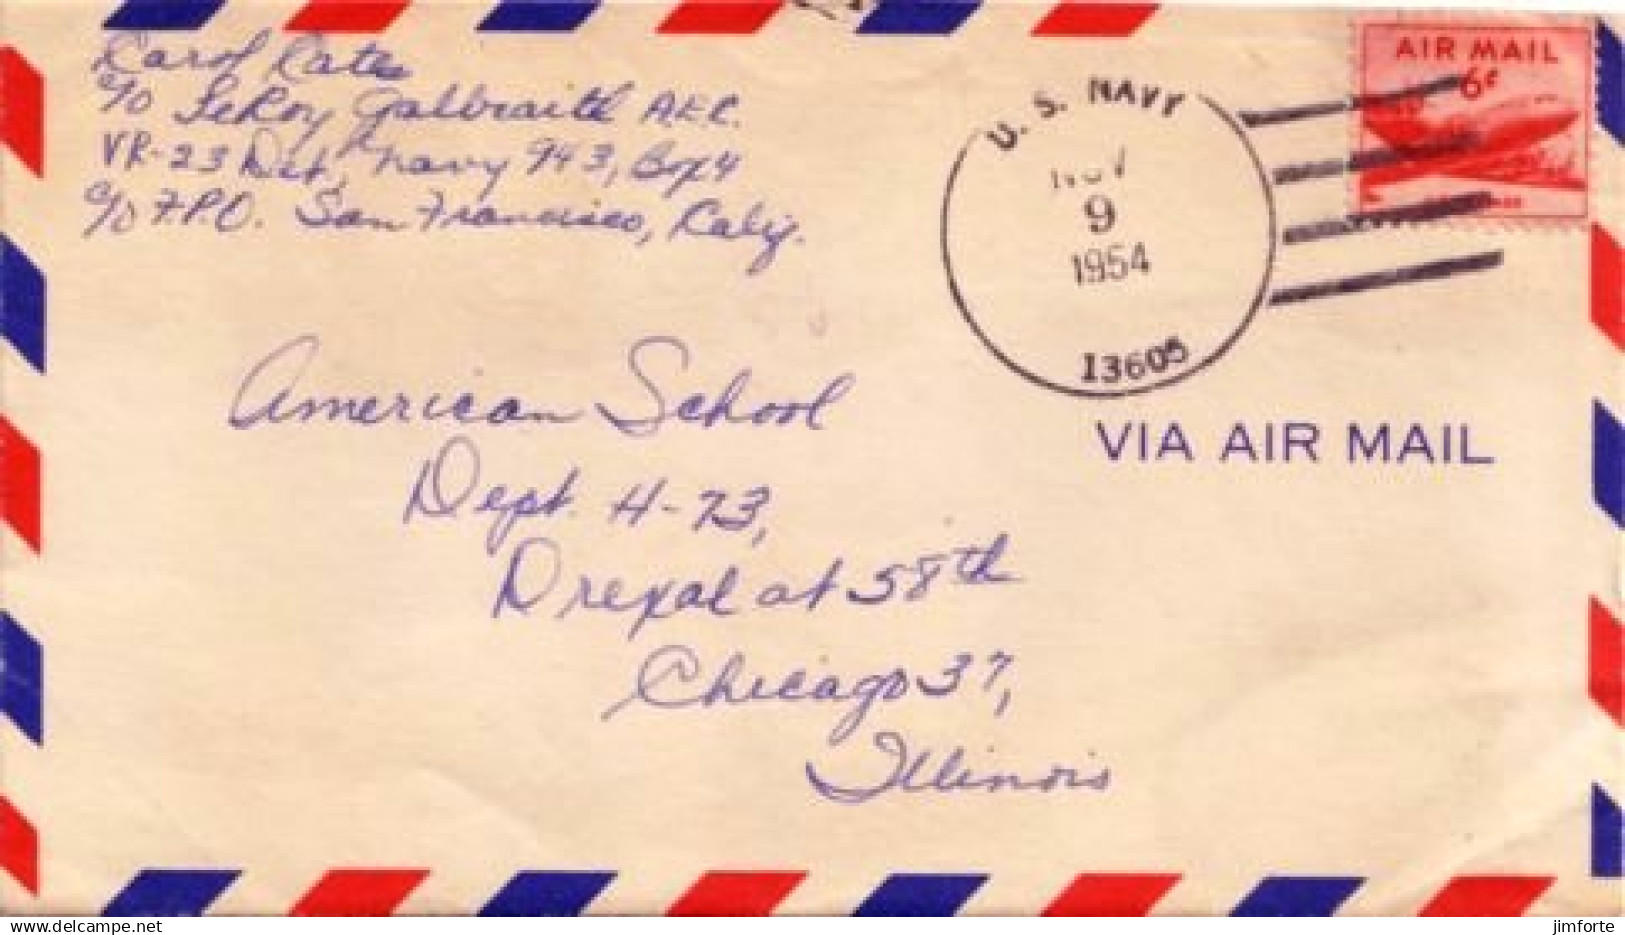 Carol Cate
c/o LeRoy Galbraith A.E.C.
VR-23 Det, Navy 943, Box 4
c/o F.P.O. San Francisco, Calif.
U. S. NAVY
NOV
9
1954
13605
AIR MAIL
6¢
VIA AIR MAIL
American School
Dept. H-73,
Drexal at 58th
Chicago 37,
Illinois
delcampe.net
jimforte